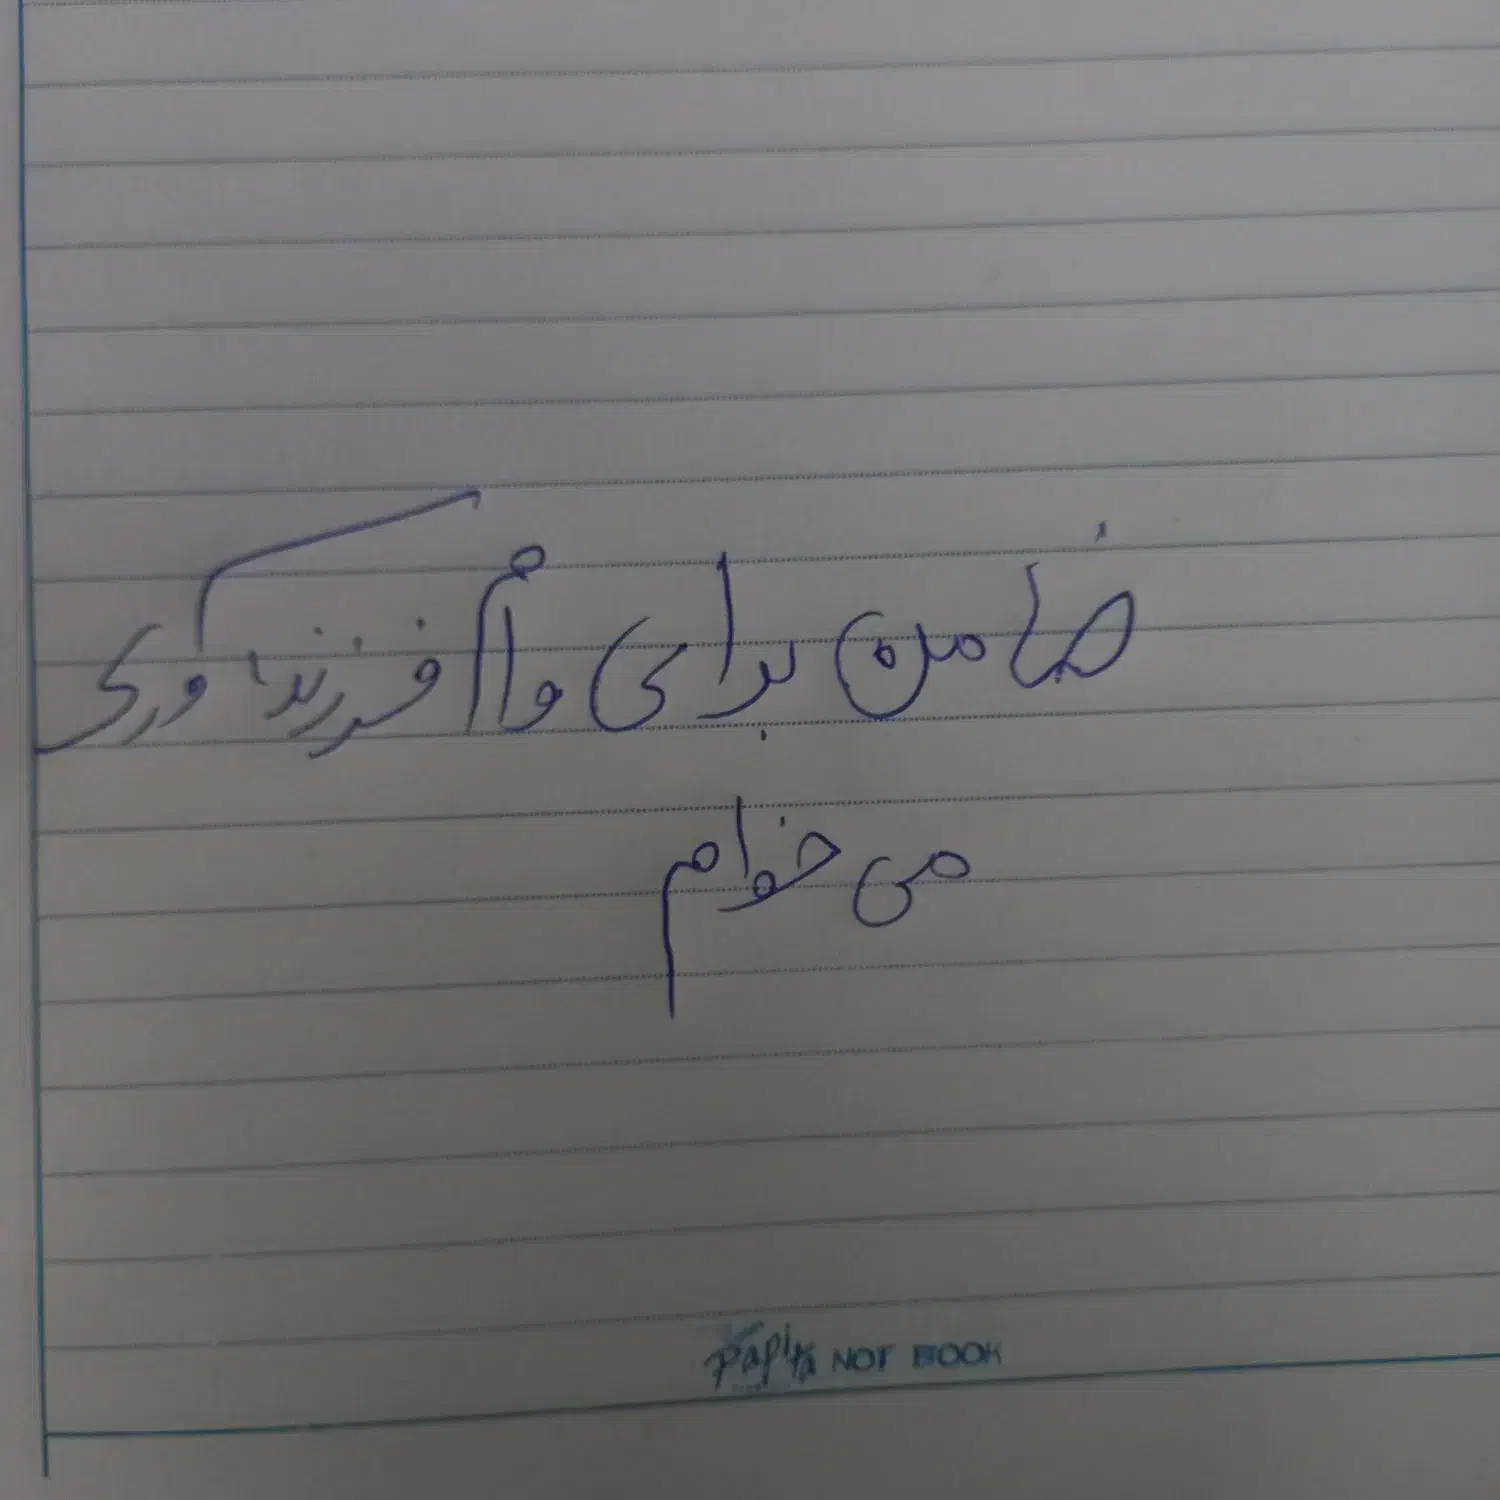 ضامن برای وام فرزند آوری
می خوام
Papira NOT BOOK